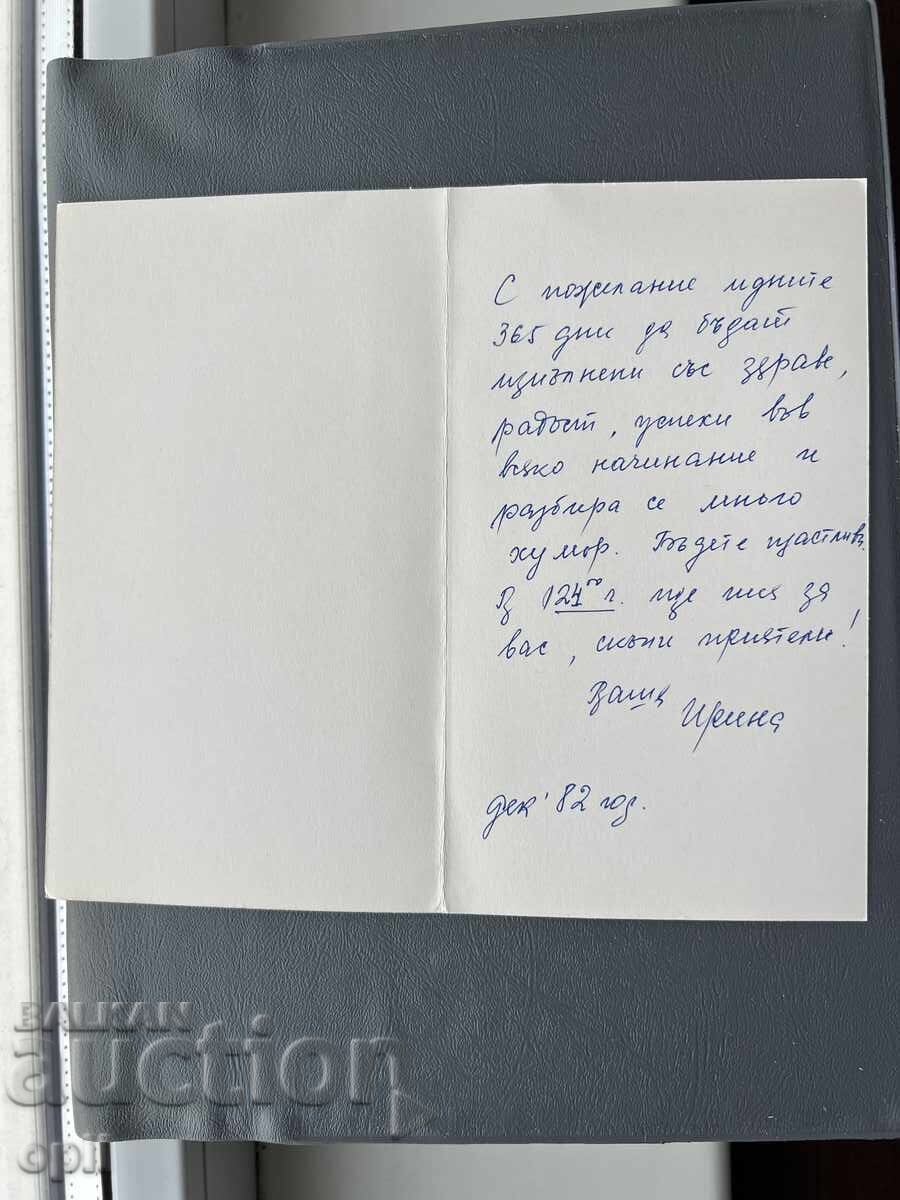 С пожелание идните
365 дни да бъдат
изпълнени със здраве,
радост, успехи във
всяко начинание и
разбира се много
хумор. Бъдете щастливи.
В 24⁰⁰ ч. ще пия за
вас, скъпи приятели!
Ваша
Ирина
дек. '82 год.
BALKAN
auction